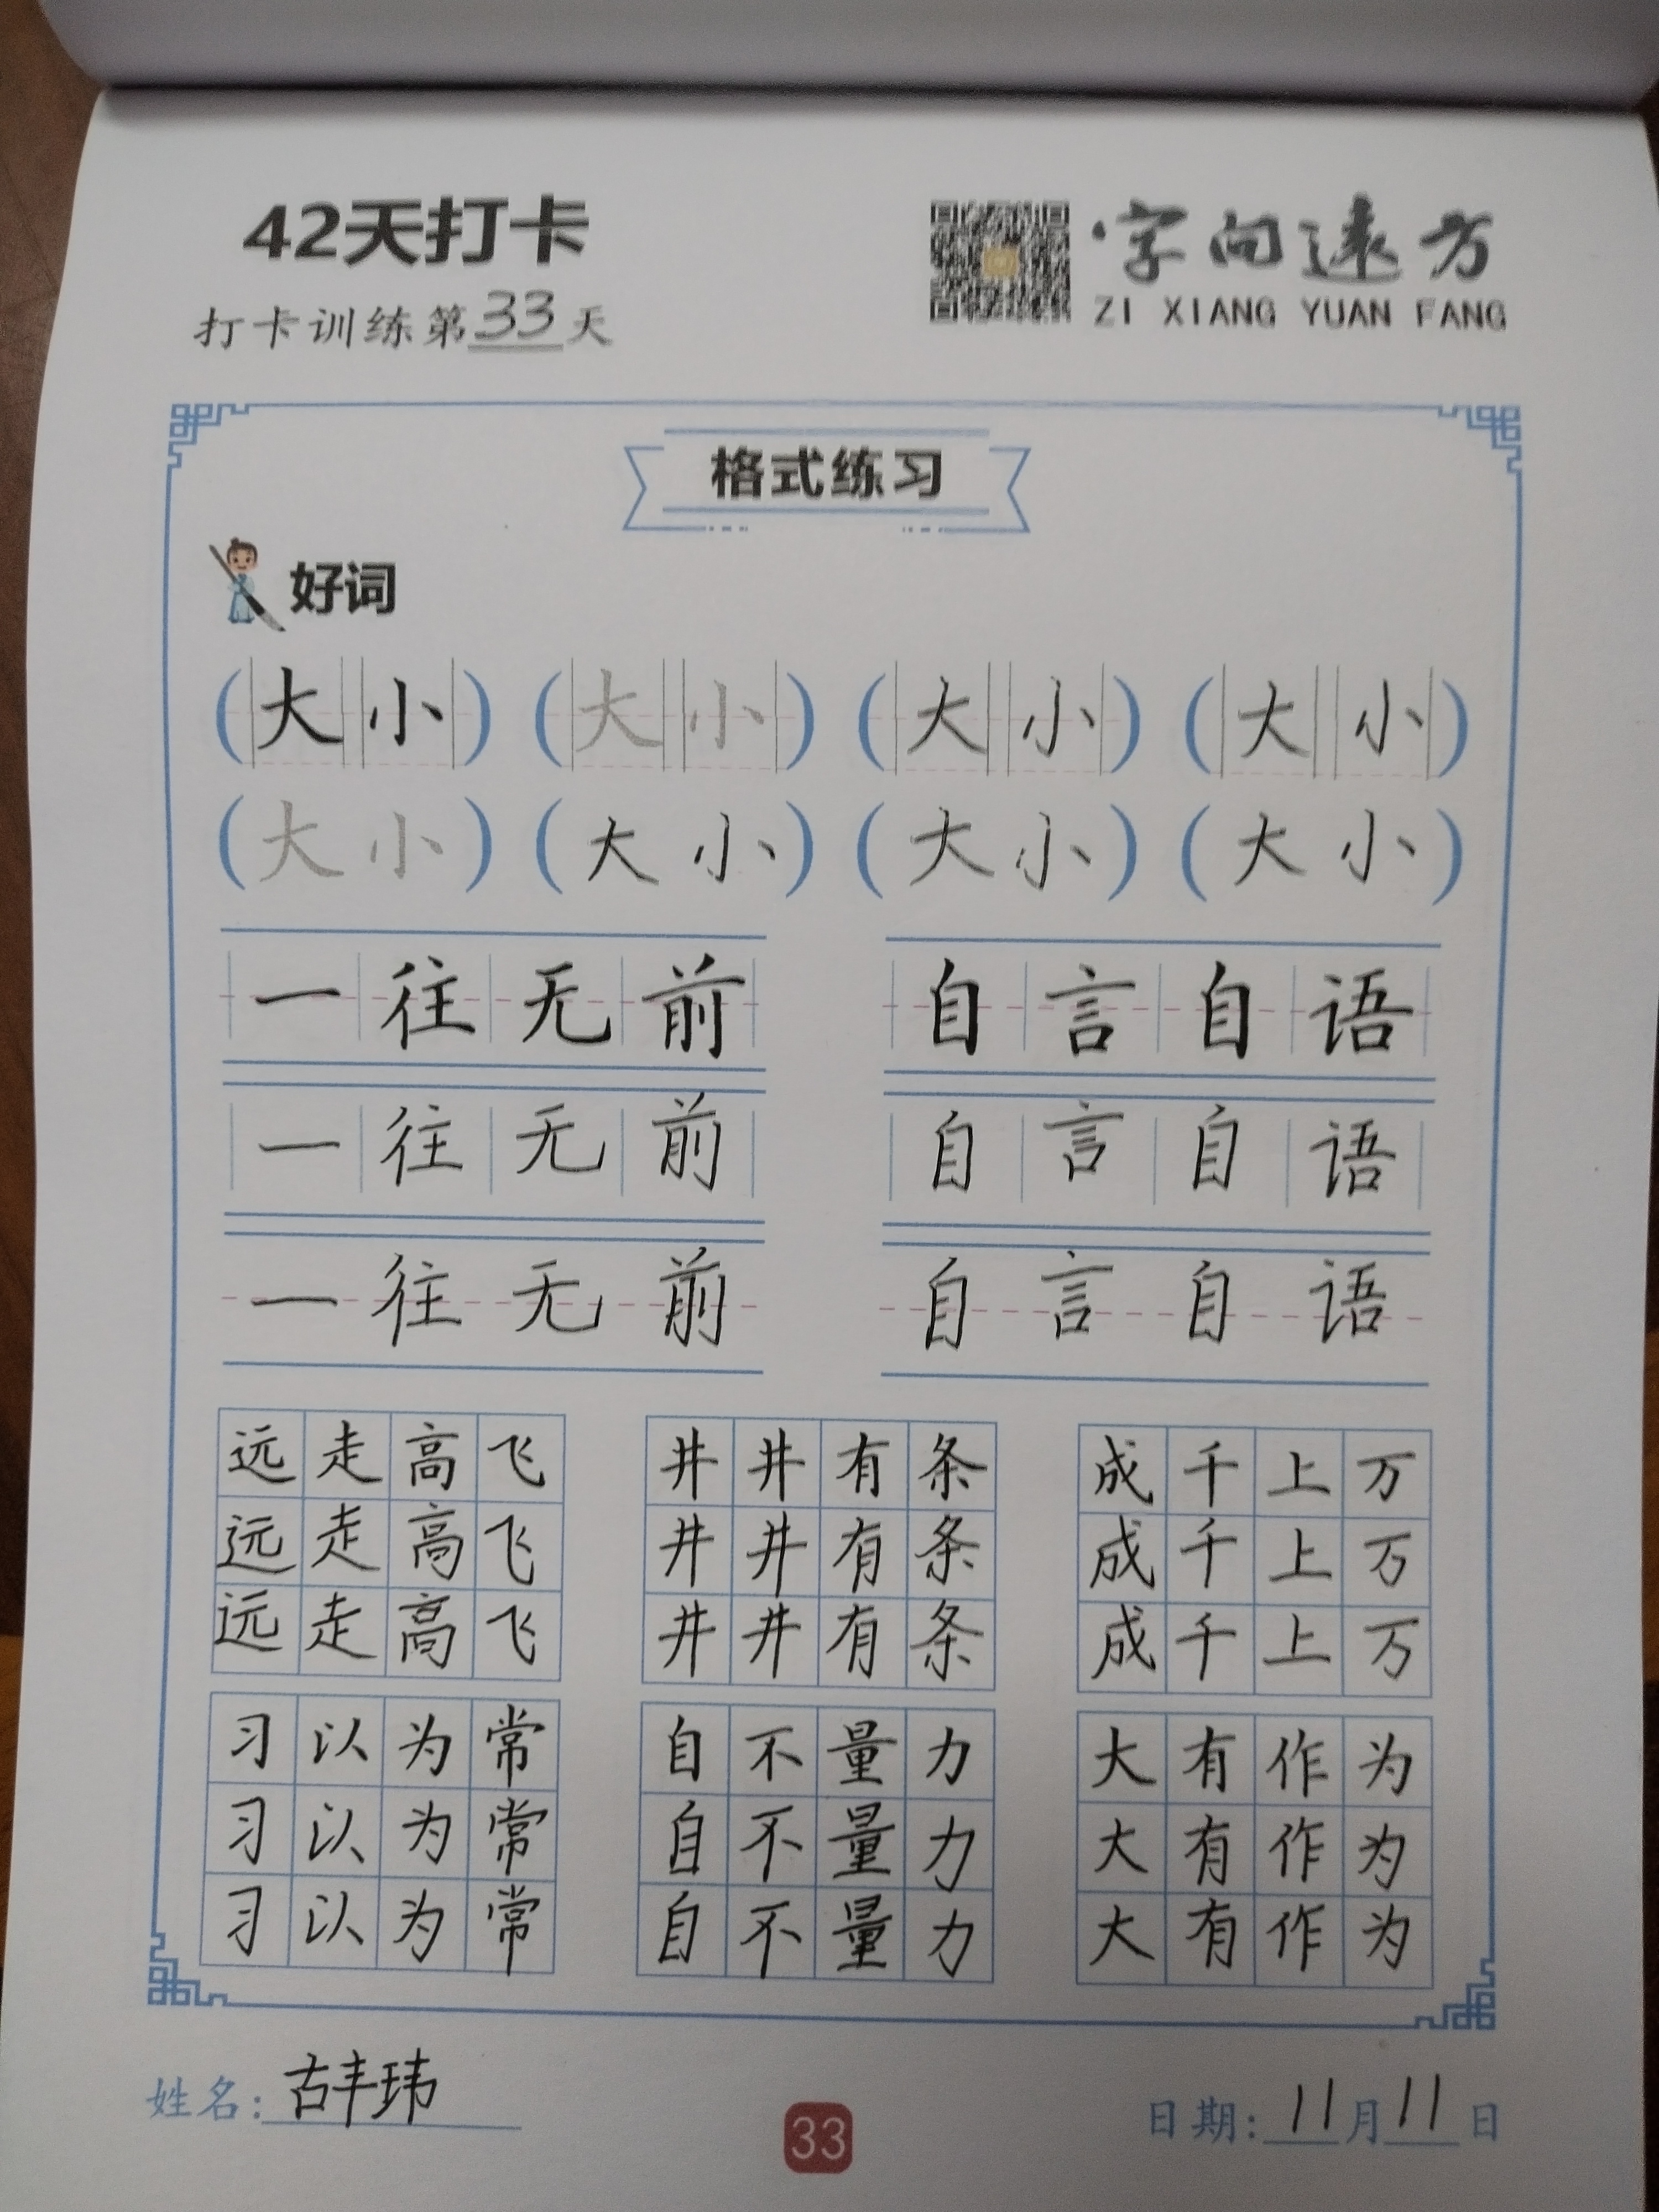 42天打卡
字向远方
ZI XIANG YUAN FANG
打卡训练第33天
格式练习
好词
(大小) (大小) (大小) (大小)
(大小) (大小) (大小) (大小)
一往无前 自言自语
一往无前 自言自语
一往无前 自言自语
远走高飞 井井有条 成千上万
远走高飞 井井有条 成千上万
远走高飞 井井有条 成千上万
习以为常 自不量力 大有作为
习以为常 自不量力 大有作为
习以为常 自不量力 大有作为
姓名:古丰玮
33
日期:11月11日